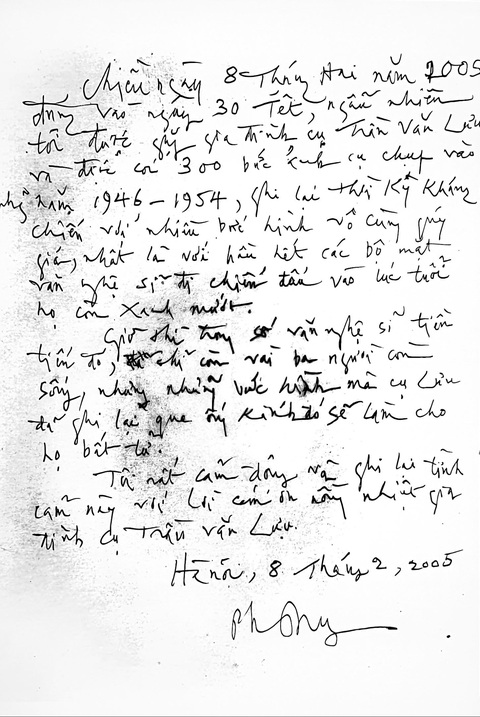 Chiều ngày 8 Tháng Hai năm 2005
đúng vào ngày 30 Tết, ngẫu nhiên
tôi được gặp gia đình cụ Trần Văn Lưu
và được coi 300 bức ảnh cụ chụp vào
những năm 1946-1954, ghi lại thời kỳ Kháng
chiến với nhiều bức hình vô cùng quý
giá, nhất là với hầu hết các bộ mặt
văn nghệ sĩ đi chiến đấu vào lúc tuổi
họ còn xanh mướt.
Giờ thì trong số văn nghệ sĩ tiền
tiến đó, chỉ còn vài ba người còn
sống, nhưng những bức hình mà cụ Lưu
đã ghi lại qua ống kính đó sẽ làm cho
họ bất tử.
Tôi rất cảm động và ghi lại tình
cảm này với lời cám ơn nồng nhiệt gia
đình cụ Trần Văn Lưu.
Hà nội, 8 Tháng 2, 2005